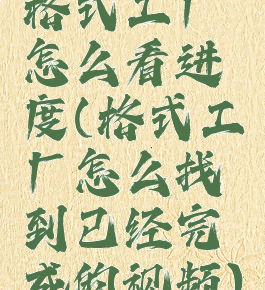 格式工厂
怎么看进
度(格式工
厂怎么找
到已经完
成的视频)